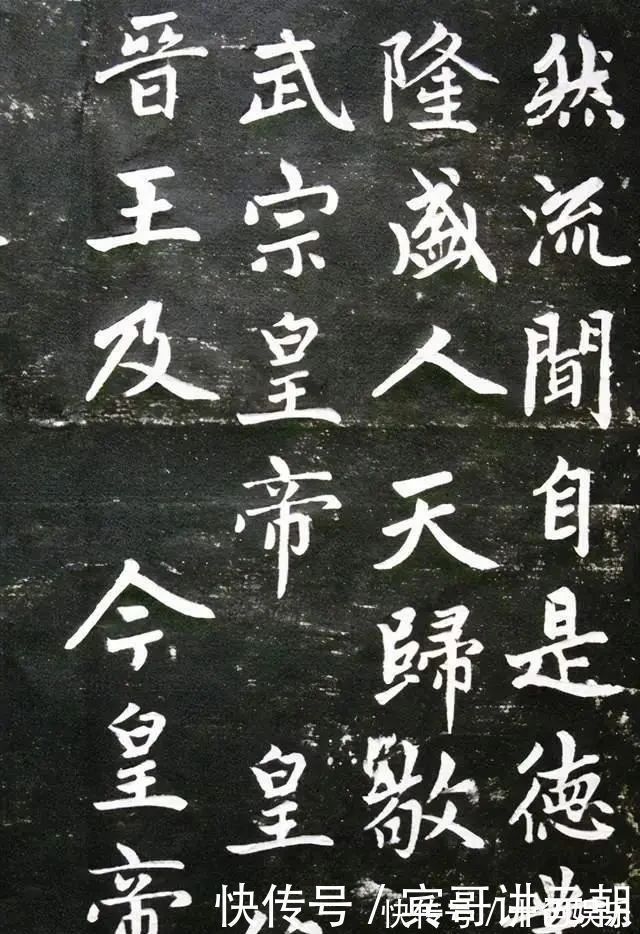 然流聞自是德業
隆盛人天歸敬
武宗皇帝 皇
晋王及 今皇帝
快传号／宾哥讲典朝